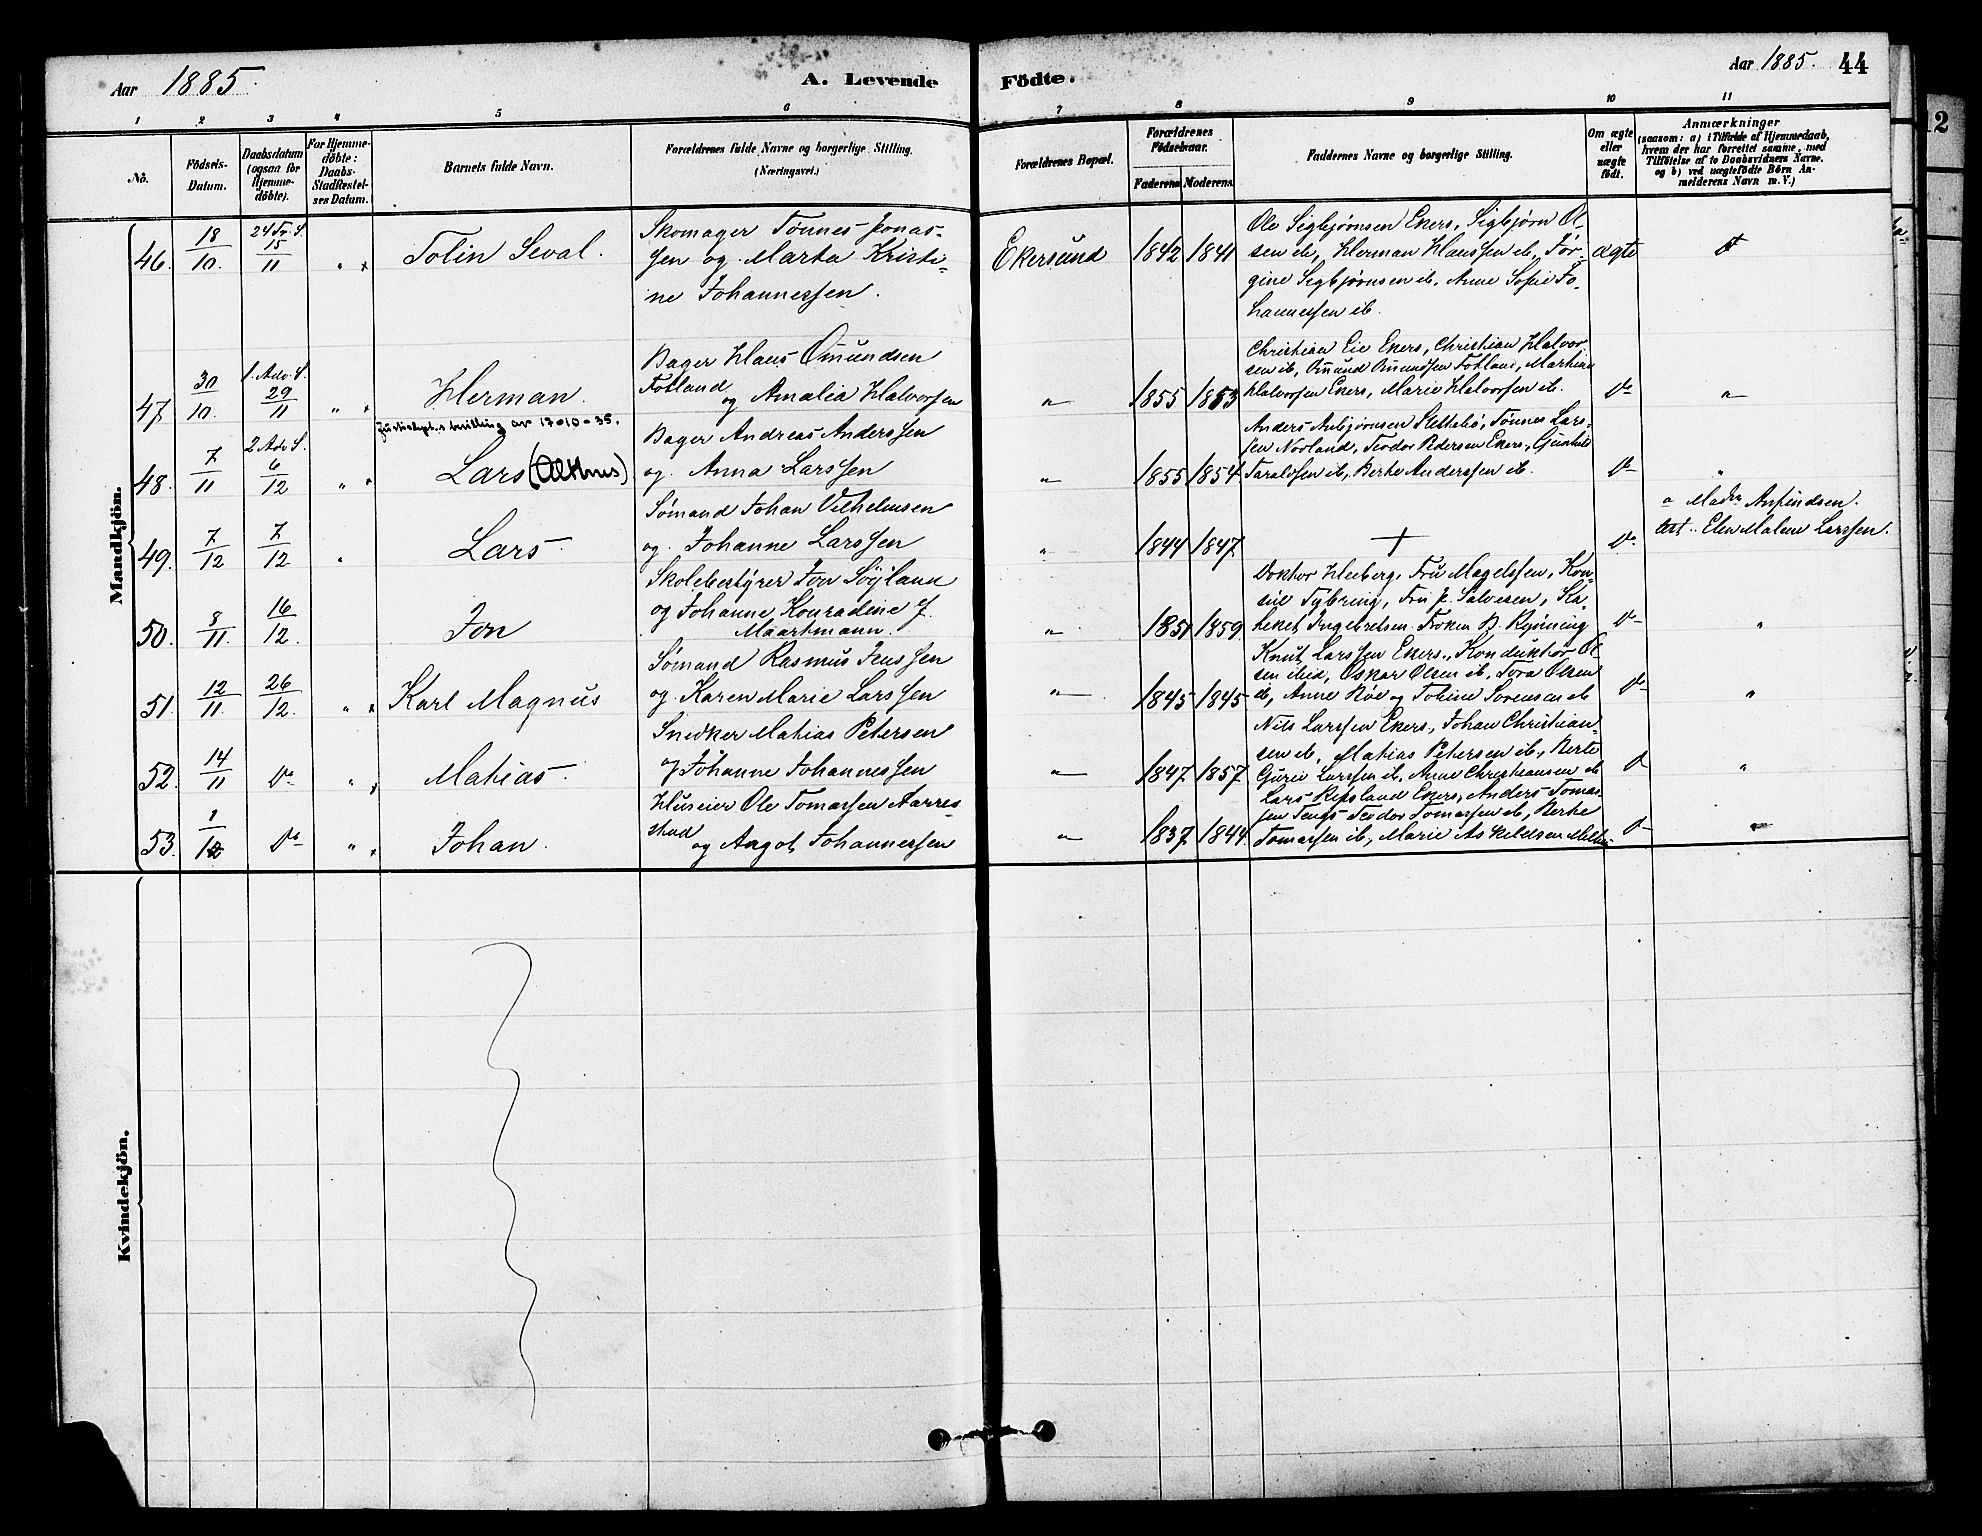 Aar 1885.
A. Levende Födte.
Aar 1885. 44
1 2 3 4 5 6 7 8 9 10 11
No.
Födsels-Datum.
Daabsdatum (ogsaa for Hjemmedøbte).
For Hjemmedøbte: Daabs-Stadfæstelses Datum.
Barnets fulde Navn.
Forældrenes fulde Navne og borgerlige Stilling. (Næringsvei.)
Forældrenes Bopæl.
Forældrenes Födselsaar.
Faderens Moderens
Faddernes Navne og borgerlige Stilling.
Om ægte eller uægte født.
Anmærkninger
(saasom: a) i Tilfælde af Hjemmedaab,
hvem der har forrettet samme, med
Tilføielse af to Daabsvidners Navne.
og b) ved uægtefødte Børn Anmelderens Navn m. V.)
Mandkjön.
46. 18/10. 24 Tr. S. 15/11 " Tolin Seval.
Skomager Tønnes Jonas-
sen og Marta Kristi-
ne Johannessen.
Ekersund 1842 1841
Ole Sigbjørnsen Ekers., Sigbjørn Ol-
sen ib., Herman Hanssen ib., Tor-
gine Sigbjørnsen ib. Anne Sofie Jo-
hannessen ib.
ægte
47. 30/10. 1. Adv. S. 29/11 " Herman.
Bager Hans Omundsen
Fotland og Amalia Halvorsen
" 1855 1853
Christian Eie Ekers., Christian Halvor
sen ib., Omund Omundsen Fotland, Martine
Halvorsen Ekers., Marie Halvorsen ib.
do "
Justisdept.s bevilling av 17-10-35.
48. 7/11 2 Adv S. 6/12 " Lars (Altmus)
Bager Andreas Anderssen
og Anna Larssen
" 1855 1854
Anders Asbjørnsen Slettebø, Tønnes Lars-
sen Norland, Teodor Pedersen Ekers., Gunhild
Taraldsen ib., Berte Anderssen ib.
do "
49. 7/12 7/12 " Lars.
Sømand Johan Vilhelmsen
og Johanne Larssen
" 1844 1847 + do
a Madm Anfindsen.
Elen Malene Larssen.
50. 8/11. 16/12. Jon
Skolebestyrer Jon Söyland
og Johanne Konradine f.
Maartmann.
" 1851 1859
Doktor Heiberg, Fru Magelssen, Kon-
sul Tybring, Fru P. Salvesen, Ka-
teket Ingebretsen. Frøken B. Rynning
do "
51. 12/11. 26/12. " Karl Magnus
Sømand Rasmus Jenssen
og Karen Marie Larssen
" 1845 1845
Knut Larssen Ekers., Konduktör Ol-
sen ib., Oskar Olsen ib., Tora Olsen
ib., Anne Röe og Tobine Sorensen ib
do "
52. 14/11 do " Mathias.
Snedker Matias Petersen
og Johanne Johannessen
" 1847 1857
Nils Larssen Ekers., Johan Christian-
sen ib., Matias Petersen ib., Berte
Gurie Larssen ib., Anne Christiansen ib
do "
53. 1/12 do " Johan.
Huseier Ole Tomassen Aarre-
stad og Aagot Johannessen
" 1837 1844
Lars Ekers., Anders Tomas-
sen Tengs, Teodor Tomassen ib, Berte
Tomassen ib., Marie Askildsen
do "
Kvindekjön.
12